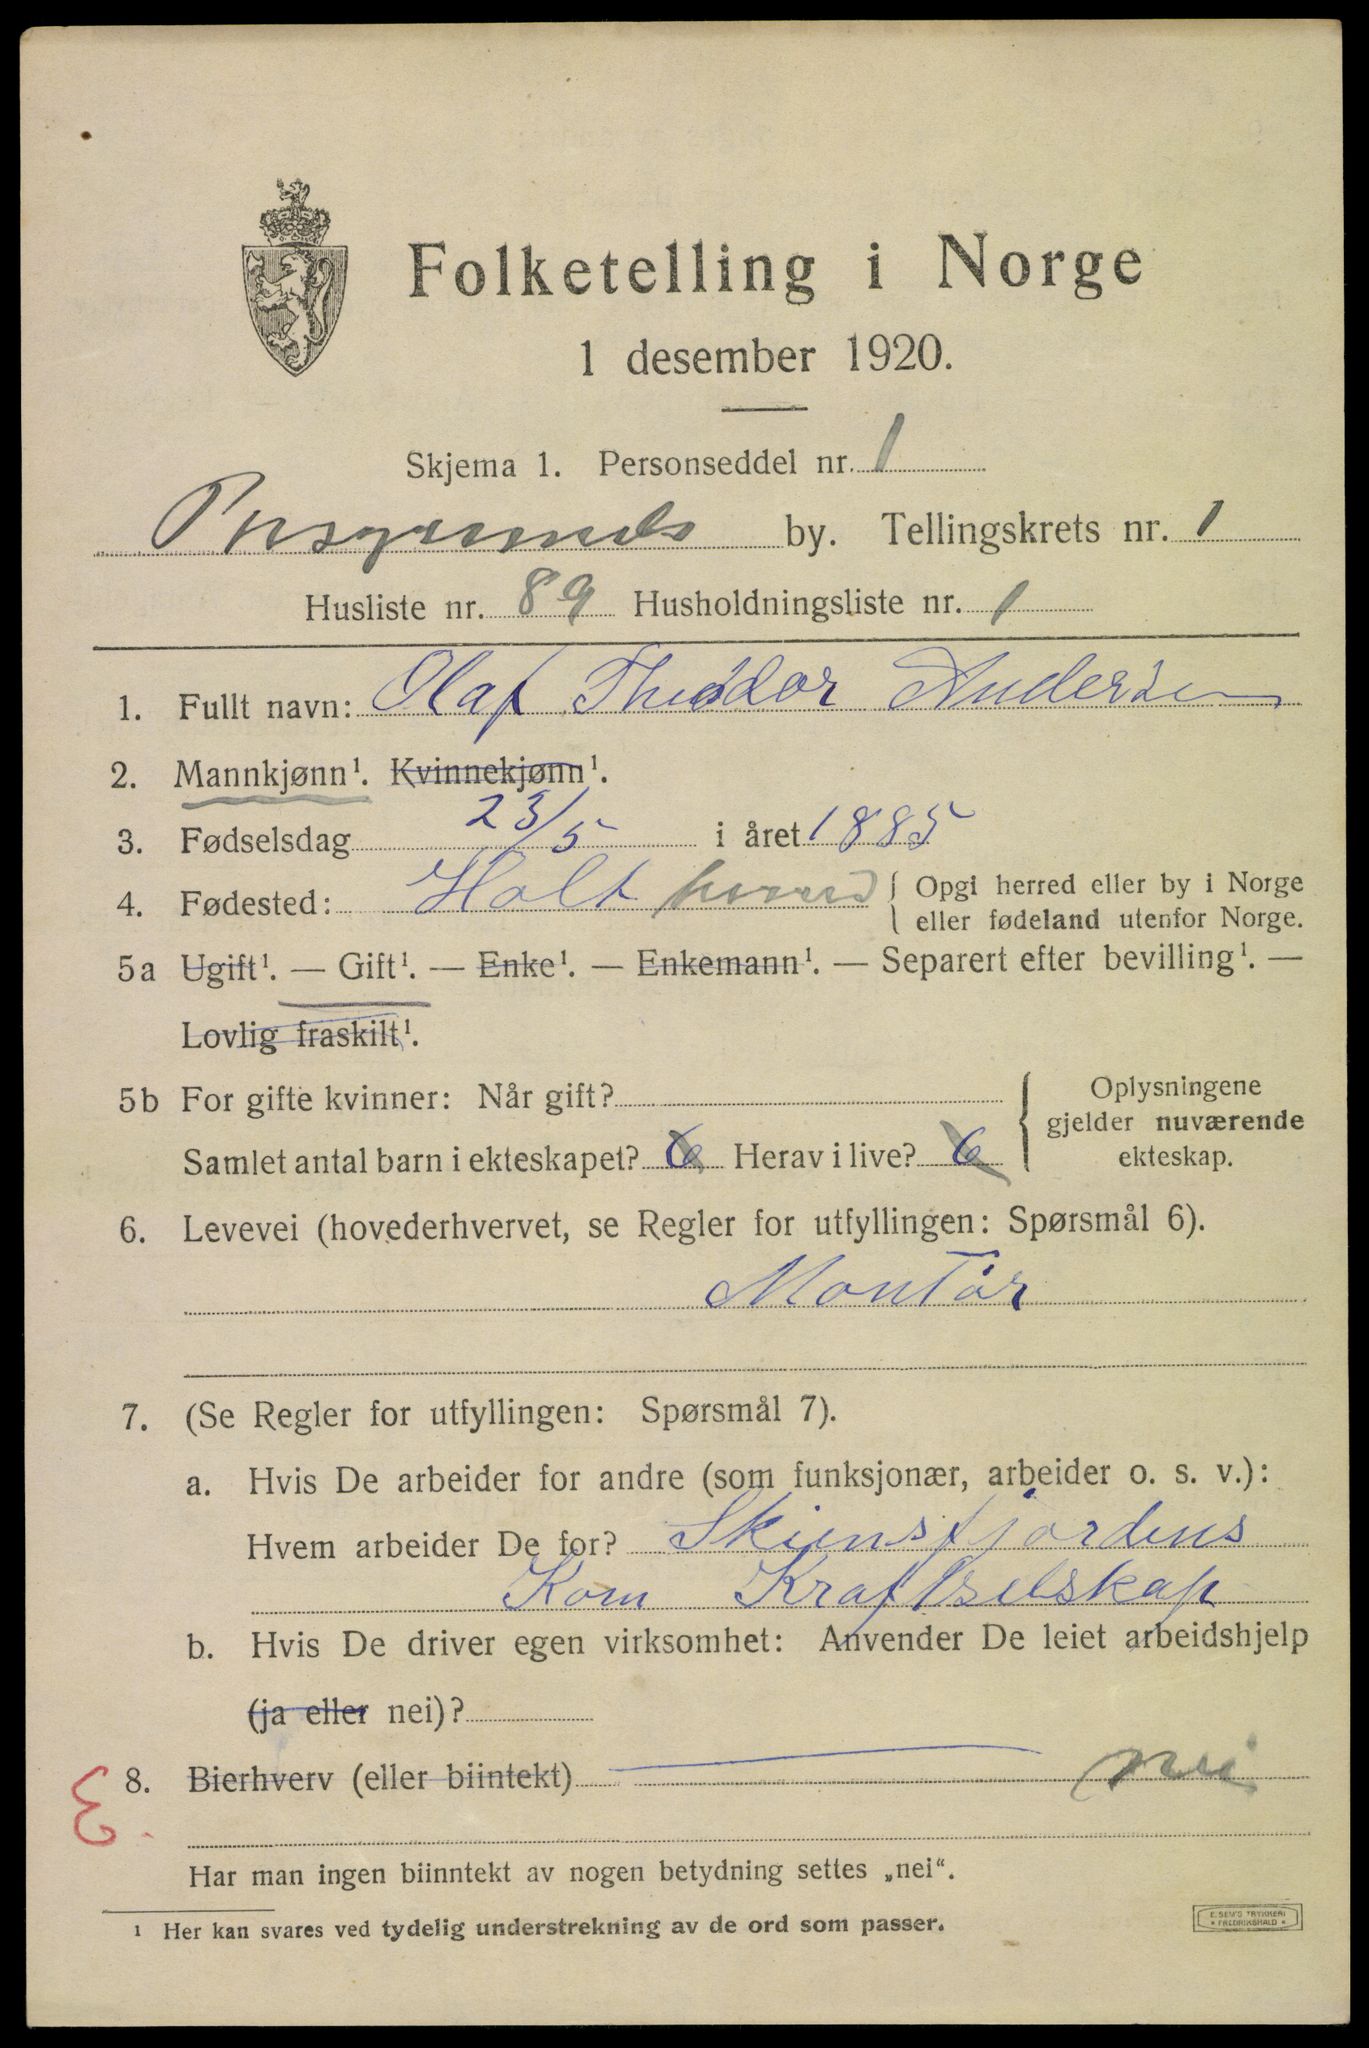 Folketelling i Norge
1 desember 1920.
Skjema 1. Personseddel nr. 1
Porsgrunds by. Tellingskrets nr. 1
Husliste nr. 89 Husholdningsliste nr. 1
1. Fullt navn: Olaf Theodor Andersen
2. Mannkjønn¹. Kvinnekjønn¹.
3. Fødselsdag 23/5 i året 1885
4. Fødested: Holt herred { Opgi herred eller by i Norge
eller fødeland utenfor Norge.
5a Ugift¹. — Gift¹. — Enke¹. — Enkemann¹. — Separert efter bevilling¹. —
Lovlig fraskilt¹.
5b For gifte kvinner: Når gift?
Samlet antal barn i ekteskapet? 6 Herav i live? 6
Oplysningene
gjelder nuværende
ekteskap.
6. Levevei (hovederhvervet, se Regler for utfyllingen: Spørsmål 6).
Montør
7. (Se Regler for utfyllingen: Spørsmål 7).
a. Hvis De arbeider for andre (som funksjonær, arbeider o. s. v.):
Hvem arbeider De for? Skiensfjordens
Kom Kraftselskap
b. Hvis De driver egen virksomhet: Anvender De leiet arbeidshjelp
(ja eller nei)?
8. Bierhverv (eller biintekt) nei
Har man ingen biinntekt av nogen betydning settes „nei".
¹ Her kan svares ved tydelig understrekning av de ord som passer.
E. SEM'S TRYKKERI
* FREDRIKSHALD *